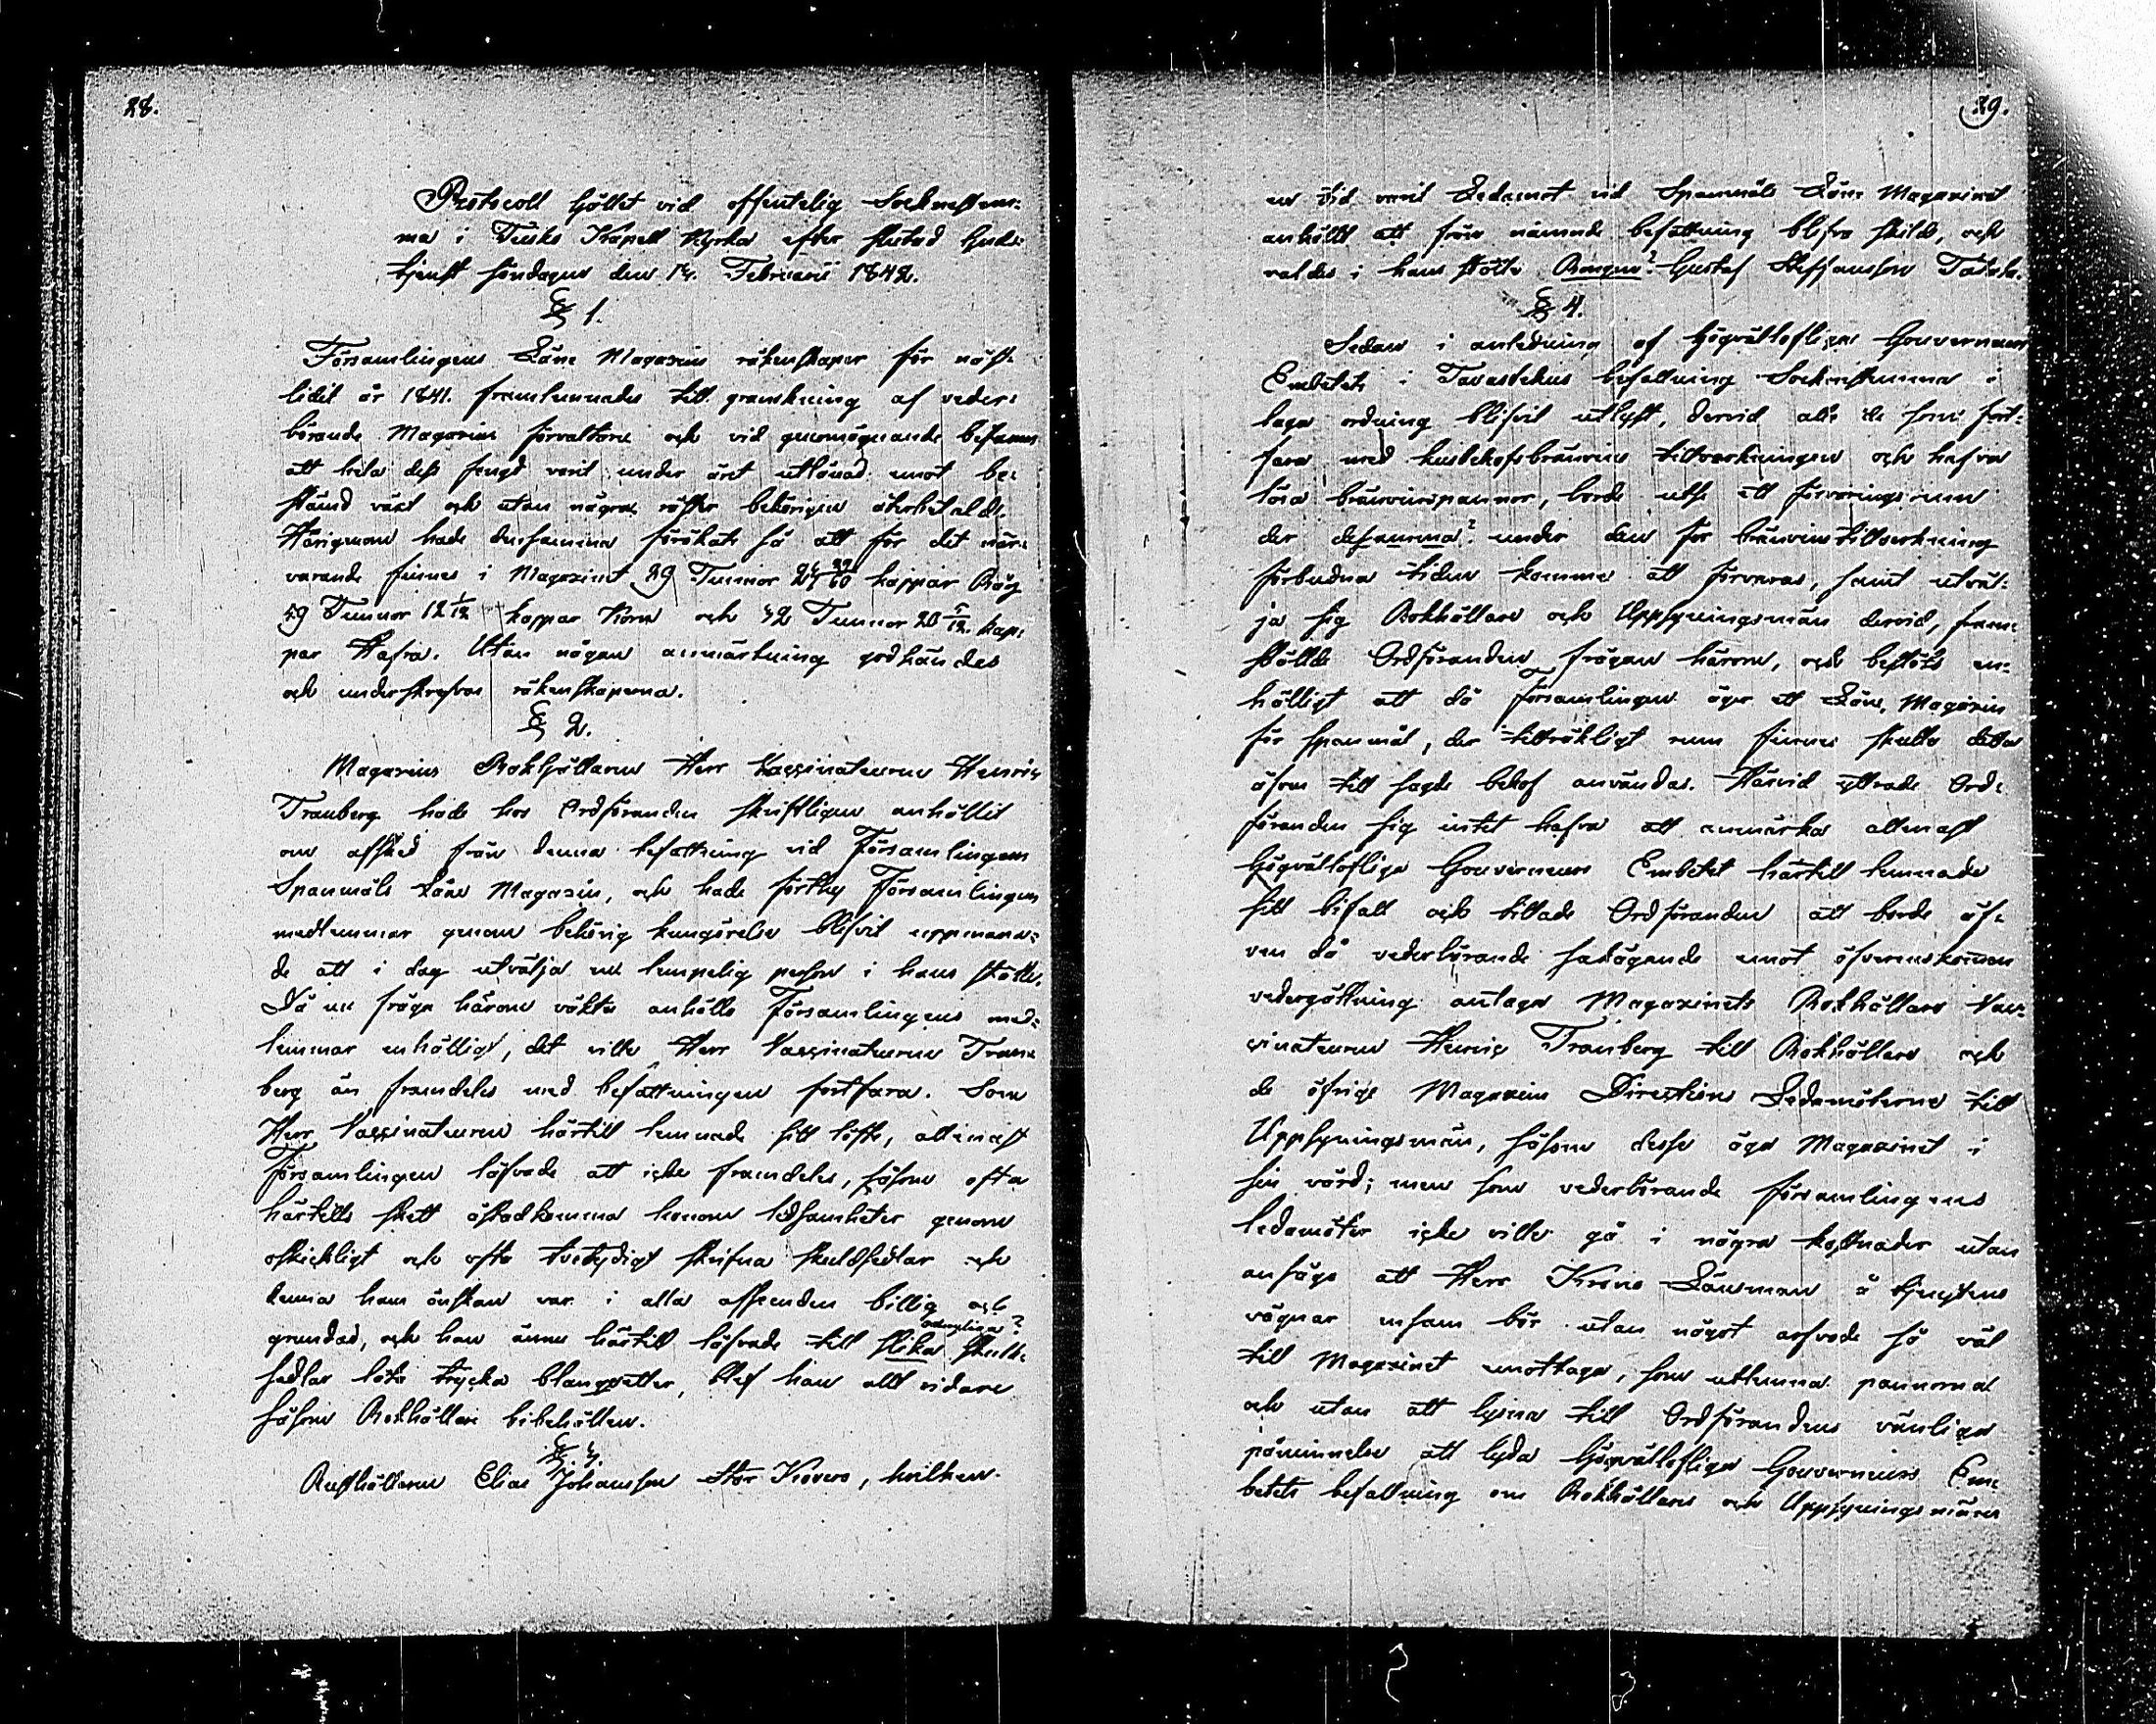 28.
Protocoll hållet vid offentelig Sockenstäm:
ma i Tuski Kapell Kyrka efter slutad Guds:
tjenst söndagen den Februarii 1842.
§ 1.
Församlingens Låne Magasins räkenskaper för näst
lidit år 1841. framlemnades till granskning af veder:
börande Magasins förvaltare och vid genomögnande befanns
att hela dess fengd varit under året utlånad emot be:
stämd växt och utan några rester behörigen återbetald.
Härigenom hade densamma förökats så att för det när:
varande finnes i Magasinet 29 Tunnor kappar Råg
59 Tunnor 12 1/12 kappar Korn och 42 Tunnor 20 5/12 kap:
par Hafra. Utan någon anmärkning godkändes
och underskrefvos räkenskaperna.
§ 2.
Magasins Bokhållaren Herr Vaccinateuren Henric
Tranberg hade hos Ordföranden skriftligen anhållit
om afsked från denna befattning vid Församlingens
Spanmåls Låne Magasin, och hade förthy Församlingens
medlemmar genom behörig kungörelse blifvit uppmana:
de att i dag utvälja en lempelig person i hans ställe.
Då nu fråga härom väktes anhöllo Församlingens med:
lemmar enhälligt, det ville Herr Vaccinateuren Tran:
berg än framdeles med befattningen fortfara. Som
Herr Vaccinateuren härtill lemnade sitt löfte, allenast
Församlingen lofvade att icke framdeles, såsom ofta
härtills skett åstadkomma honom ledsamheter genom
oskickligt och ofta tvetydigt skrifna skuldsedlar och
denna hans önskan var i alla afseenden billig och
grundad, och han ännu härtill lofvade till slika skuld:
sedlar låta trycka blanquetter, blef han allt vidare
såsom Bokhållare bibehållen.
§ 3.
Rusthållaren Elias Johansson Stor Kiovero, hvilken
29.
en tid varit Ledamot vid Spanmåls Låne Magasinet
anhöllt att från nämnde befattning blifva skild, och
valdes i hans ställe Bonden? Gustaf Steffansson Tatula.
§ 4.
Sedan i anledning af Högvällofliga Gouverneurs
Embetets i Tavastehus befallning Sockenstämma i
laga ordning blifvit utlyst, dervid alla de som fort:
fara med husbehofsbränvins tillverkningen och hafva
lösa bränvinspannor, borde utse ett förvaringsrum
der desamma? under den för bränvinstillverkning
förbudna tiden komme att förvaras, samt utväl:
ja sig Bokhållare och Uppsyningsmän dervid, fram:
ställde Ordföranden frågan härom, och beslöts en:
hälligt att då Församlingen äger ett Låne Magasin
för spanmål, der tillräkligt rum finnes skulle detta
äfven till sagde behof användas. Härvid yttrade Ord:
föranden sig intet hafva att anmärka allenast
Högvällofliga Gouverneurs Embetet härtill lemnade
sitt bifall och tillade Ordföranden att borde äf:
ven då vederbörande sakägande emot öfverenskommen
vedergällning antaga Magasinets Bokhållare Vac:
cinateuren Henric Tranberg till Bokhållare och
de öfrige Magasins Directions Ledamöterne till
Uppsyningsmän, såsom desse äga Magasinet i
sin vård; men som vederbörande församlingens
ledamöter icke ville gå i några kostnader utan
ansågo att Herr Krono Länsman å tjenstens
vägnar ensam bör utan något arfvode så väl
till Magasinet emottaga, som utlemna pannorna
och utan att lyssna till Ordförandens vänliga
påminnelse att lyda Högvällofliga Gouverneurs Em:
betets befallning om Bokhållare och Uppsyningsmäns